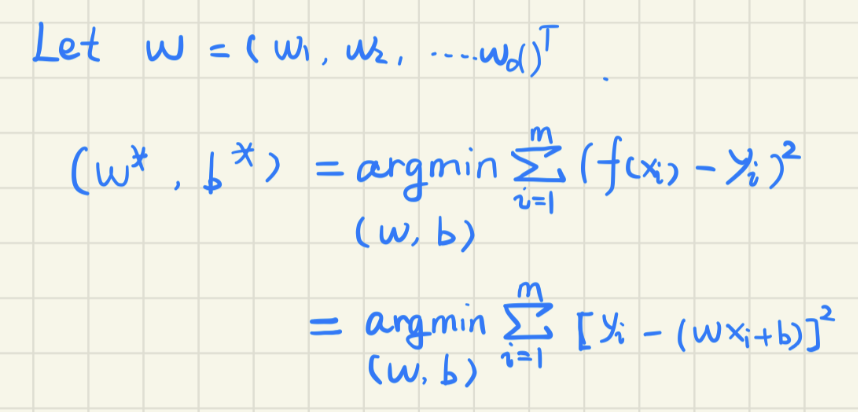 Let w = (w₁, w₂, ....w_d)ᵀ .
(w*, b*) = argmin ∑ᵢ₌₁ᵐ (f(xᵢ) - yᵢ)²
(w, b)
= argmin ∑ᵢ₌₁ᵐ [yᵢ - (wxᵢ+b)]²
(w, b)